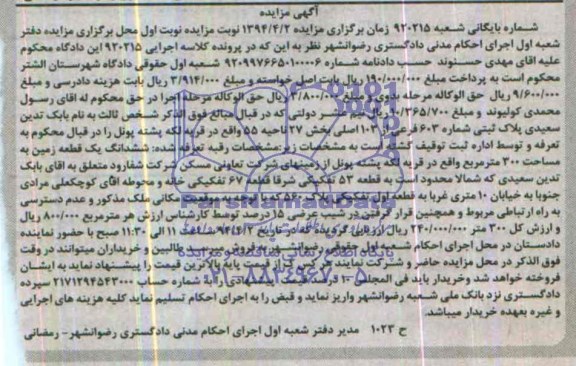 آگهی مزایده
شماره بایگانی شعبه ۹۲۰۲۱۵ زمان برگزاری مزایده ۱۳۹۴/۴/۲ نوبت مزایده نوبت اول محل برگزاری مزایده دفتر
شعبه اول اجرای احکام مدنی دادگستری رضوانشهر نظر به این که در پرونده کلاسه اجرایی ۹۲۰۲۱۵ این دادگاه محکوم
علیه اقای مهدی حسنوند حسب دادنامه شماره ۹۲۰۹۹۷۶۶۵۰۱۰۰۰۶ شعبه اول حقوقی دادگاه شهرستان الشتر
محکوم است به پرداخت مبلغ ۱۹۰/۰۰۰/۰۰۰ ریال بابت اصل خواسته و مبلغ ۳/۹۱۴/۰۰۰ ریال بابت هزینه دادرسی و مبلغ
۹/۶۰۰/۰۰۰ ریال حق الوکاله مرحله بدوی و مبلغ ۳/۸۰۰/۰۰۰ ریال حق الوکاله مرحله اجرا در حق محکوم له اقای رسول
محمدی کولیوند و مبلغ ریال نیم عشر دولتی که در قبال مبالغ فوق الذکر شخص ثالث به نام بابک تدین
سعیدی پلاک ثبتی شماره ۶۰۳ فرعی از ۱۰۳ اصلی بخش ۲۷ ناحیه ۵۵ واقع در قریه لکه پشته پونل را در قبال محکوم به
تعرفه و توسط اداره ثبت توقیف گشته است به مشخصات زیر:مشخصات رقبه تعرفه شده: ششدانگ یک قطعه زمین به
مساحت ۳۰۰ مترمربع واقع در قریه لکه پشته پونل از زمینهای شرکت تعاونی مسکن شرکت شفارود متعلق به اقای بابک
تدین سعیدی که شمالا محدود است به قطعه ۵۳ تفکیکی شرقا قطعه ۶۷ تفکیکی خانه و محوطه اقای کوچکعلی مرادی
جنوبا به خیابان ۱۰ متری غربا به قطعه اول تفکیکی پلاک ۵۶ که با توجه به موقعیت مکانی ملک مذکور و عدم دسترسی
به راه ارتباطی مربوط و همچنین قرار گرفتن در شیب عرضی ۱۵ درصد توسط کارشناس ارزش هر مترمربع ۸۰۰/۰۰۰ ریال
و ارزش کل ۳۰۰ متر ۲۴۰/۰۰۰/۰۰۰ ریال ارزیابی گردیده که در تاریخ ساعت ۱۱ الی ۱۱:۳۰ صبح با حضور نماینده
دادستان در محل اجرای احکام شعبه اول حقوقی رضوانشهر به فروش میرسد طالبین و خریداران میتوانند در وقت
فوق الذکر در محل مزایده حاضر و شرکت نمایند هر کس از قیمت پایه بالاترین قیمت را پیشنهاد نماید به ایشان
فروخته خواهد شد وخریدار باید فی المجلس ۱۰ درصد قیمت پیشنهادی را به شماره حساب ۲۱۷۱۲۹۴۵۴۳۰۰۰ سپرده
دادگستری نزد بانک ملی شعبه رضوانشهر واریز نماید و قبض را به اجرای احکام تسلیم نماید کلیه هزینه های اجرایی
و غیره بعهده خریدار میباشد.
ح ۱۰۲۳ مدیر دفتر شعبه اول اجرای احکام مدنی دادگستری رضوانشهر- رمضانی